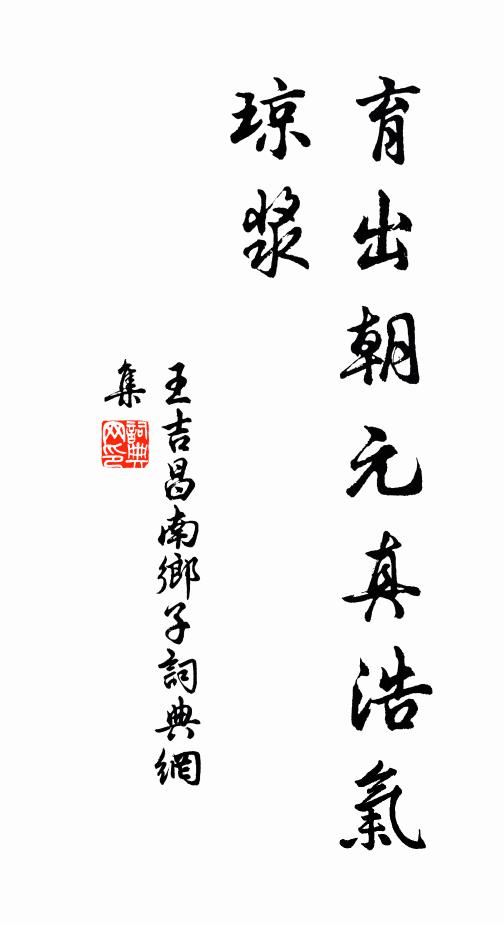 育出朝元真浩氣
琼漿
王吉昌南鄉子詞典網
集
詞典
网印